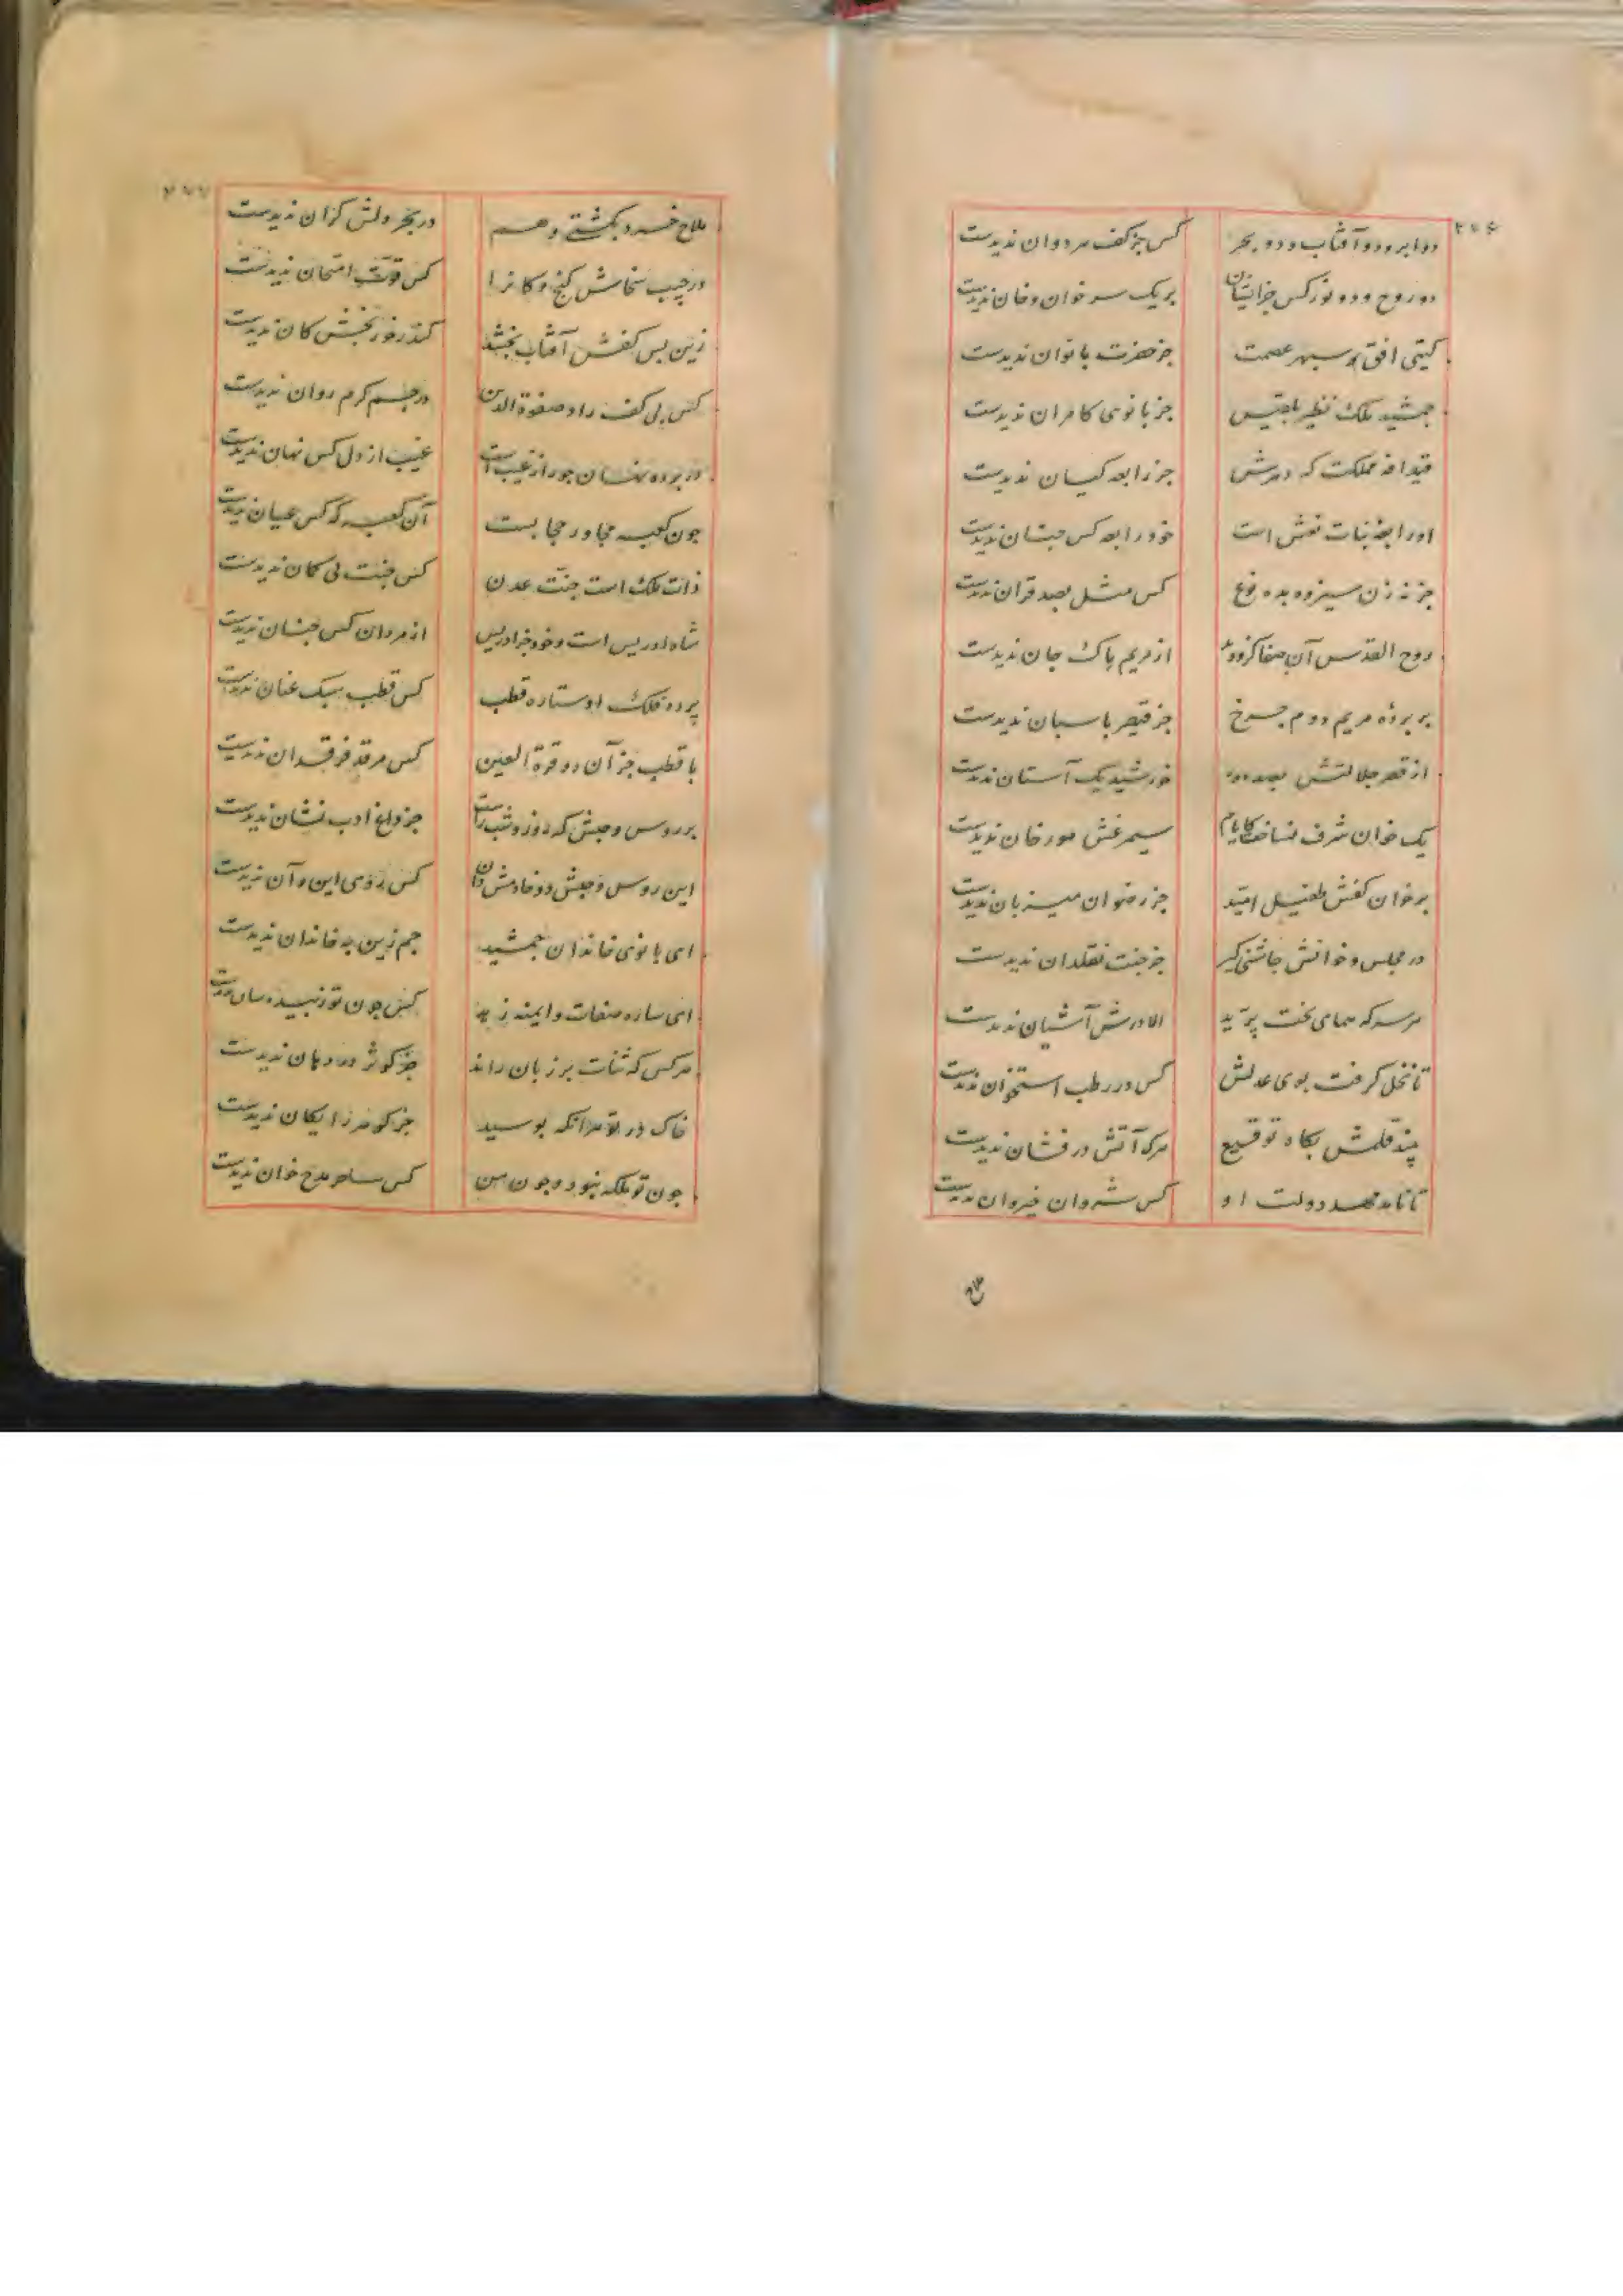 ۲۷۶
دو ابر و دو آفتاب و دو بحر کس جز کف هر دوان ندیدست
دو روح و دو نور کس جز ایشان بر یک سر خوان و خان ندیدست
کیتی افق سپهر عصمت جز حضرت بانوان ندیدست
جمشید ملک نظیر بلقیس جز بانوی کامران ندیدست
قیدافه مملکت که دهرش جز رابعه کیان ندیدست
او رابعه بنات نعش است خود رابعه کس چنان ندیدست
جز نه زن سیزده بده نوع کس مثل بصد قران ندیدست
روح القدس آن صفا کزو دید از مریم پاک جان ندیدست
بر پرده مریم دوم چرخ جز قیصر پاسبان ندیدست
از قصر جلالتش بصد دور خورشید یک آستان ندیدست
یک خوان شرف نساخت کایام سیمرغش مورخان ندیدست
بر خوان کفش طفیل امید جز رضوان میزبان ندیدست
در مجلس و خوانش چاشنی کیر جز جنت نقلدان ندیدست
هر سر که همای بخت پرید الا درش آشیان ندیدست
تا نخل کرفت بوی عدلش کس در رطب استخوان ندیدست
بیند قلمش بکاه توقیع هرک آتش درفشان ندیدست
تا نامد مهد دولت او کس شروان خیروان ندیدست
ملاح
۲۷۷
ملاح خرد بکشتی وهم در بحر دلش کران ندیدست
در جیب سخاش کنج و کانرا کس قوت امتحان ندیدست
زین پس کفش آفتاب بخشد کاندر خور بخشش کان ندیدست
کس بی کف راد صفوة الدین در جسم کرم روان ندیدست
در پرده نهان چو راز غیب است غیب از دل کس نهان ندیدست
چون کعبه مجاور حجابست آن کعبه که کس عیان ندیدست
ذات ملک است جنت عدن کس جنت بی کمان ندیدست
شاه ادریس است و خود جز ادریس از مردان کس جنان ندیدست
پرده فلک او ستاره قطب کس قطب سبک عنان ندیدست
با قطب جز آن دو قرة العین کس مرقد فرقدان ندیدست
بر روس و حبش که روز و شب راست جز داغ ادب نشان ندیدست
این روس و حبش دو خادمش دان کس زوی این و آن ندیدست
ای بانوی خاندان جمشید جم زین به خاندان ندیدست
ای ساره صفات و زهد کس چون تو زبیده سان ندیدست
هر کس که ثنات بر زبان راند جز کوثر در دهان ندیدست
خاک در تو هر آنکه بوسید جز کوهر رایکان ندیدست
چون تو ملکه نبود و چون من کس ساحر مدح خوان ندیدست